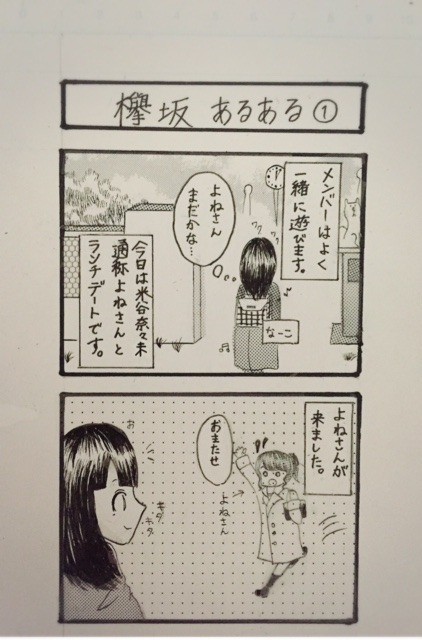 欅坂 あるある①
メンバーはよく
一緒に遊びます。
よねさん
まだかな…
ワクワク
なーこ
今日は米谷奈々未
通称よねさんと
ランチデートです。
よねさんが
来ました。
おまたせ
よねさん
お
キタ
キタ